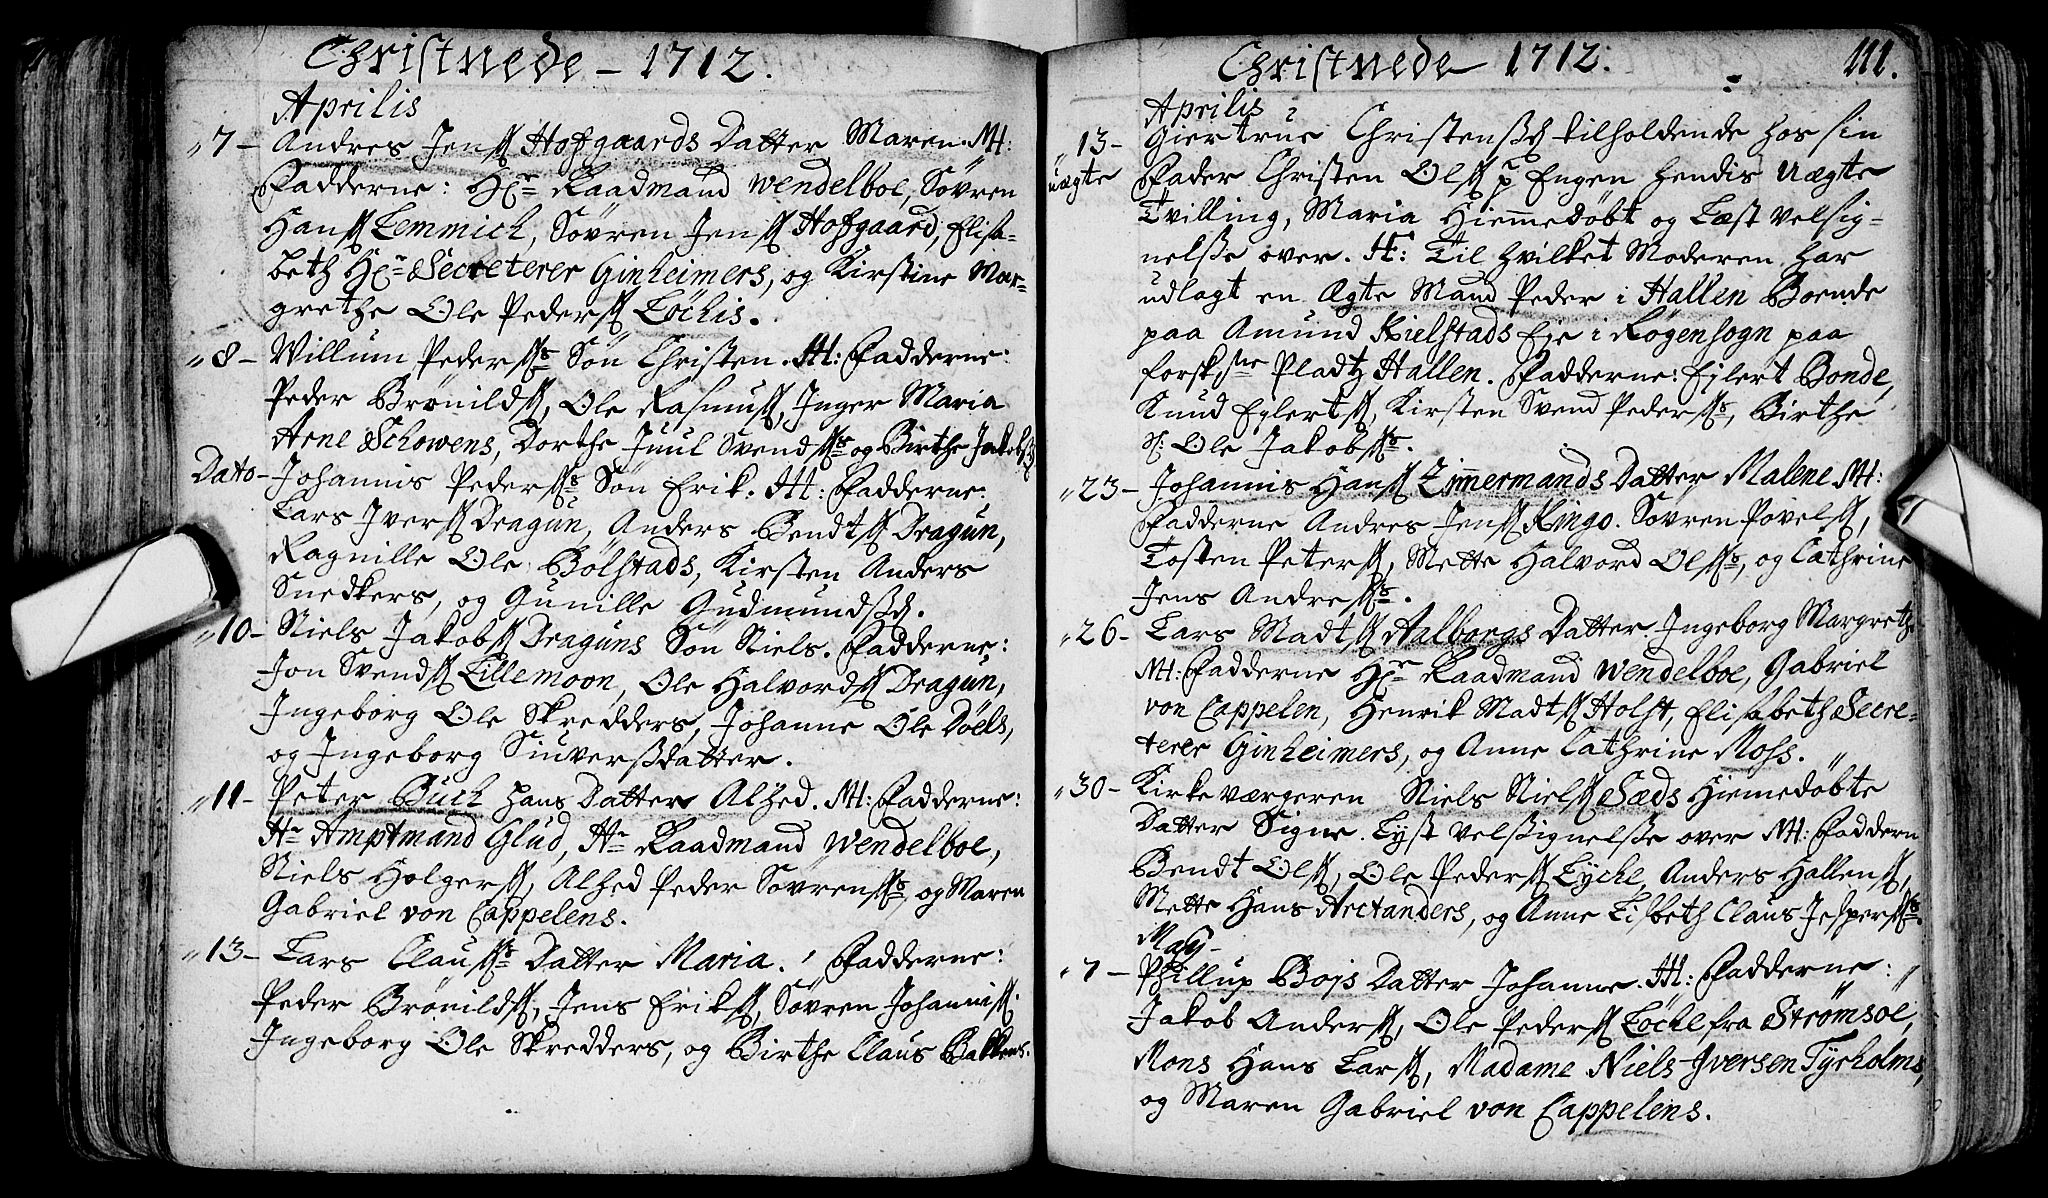 Christnede - 1712.
Aprilis
" 7 - Andres Jenss Hofgaards Datter Maren. M:
Fadderne: Hr Raadmand Wendelboe, Søvren
Hanss Lemmich, Søvren Jenss Hofgaard, Elisa-
beth Hr Secreterer Ginheimers, og Kirstine Mar-
grethe Ole Pederss Löchis.
" 8 - Willum Pederss Søn Christen. M: Fadderne:
Peder Brönildss, Ole Rasmuss, Inger Maria
Arne Schowens, Dorthe Juul Svendss og Birthe Jakobs
Dato - Johannis Pederss Søn Erik. M: Fadderne:
Lars Iverss Dragun, Anders Bendtss Dragun,
Ragnille Ole Bölstads, Kirsten Anders
Snedkers, og Gunille Gudmundsd.
" 10 - Niels Jakobss Draguns Søn Niels. Fadderne:
Jon Svendss Lillemoon, Ole Halvordss Dragun,
Ingeborg Ole Skredders, Johanne Ole Döels,
og Ingeborg Siuversdatter.
" 11 - Peter Buch hans Datter Alhed. M: Fadderne:
Hr Amptmand Glud, Hr Raadmand Wendelboe,
Niels Holgerss, Alhed Peder Søvrenss, og Maren
Gabriel von Cappelens.
" 13 - Lars Clauss Datter Maria. Fadderne:
Peder Brönildss, Jens Erikss, Søvren Johanniss.
Ingeborg Ole Skredders, og Birthe Claus Bakkens.
Christnede 1712. 111.
Aprilis
" 13 - Giertrue Christensd tilholdende hos sin
uægte Fader Christen Olss p Engen hendis Uægte
Tvilling, Maria Hiemmedöbt og Læst velsig-
nelsse over. M: Til hvilket Moderen har
udlagt en Ægte Mand Peder i Hallen Boende
paa Amund Kielstads Eje i Røgensogn paa
forskne Pladtz Hallen. Fadderne: Ejlert Bonde,
Knud Eglertss, Kirsten Svend Pederss, Birthe
Ole Jakobss.
" 23 - Johannis Hanss Zimmermands Datter Malene M:
Fadderne Andres Jenss Ringo. Søvren Povelss,
Tosten Peterss, Mette Halvord Olss, og Cathrine
Jens Andress.
" 26 - Lars Madtss Aalborgs Datter Ingeborg Margreth
M: Fadderne Hr Raadmand Wendelboe, Gabriel
von Cappelen, Henrik Madtss Holst, Elisabeth Secre-
terer Ginheimers, og Anne Cathrine Moss. "
" 30 - Kirkeværgeren Niels Nielss Sæds Hiemedöbte
Datter Signe. Lyst velssignelsse over M: Faddern
Bendt Olss, Ole Pederss Lyche, Anders Hallenss,
Mette Hans Arctanders, og Anne Lisbeth Claus Jesperss.
May -
" 7 - Phillup Bojs Datter Johanne. M: Fadderne: "
Jakob Anderss, Ole Pederss Löche fra Strømsoe,
Mons Hans Larss, Madame Niels Iversen Tyrholms,
og Maren Gabriel von Cappelens.